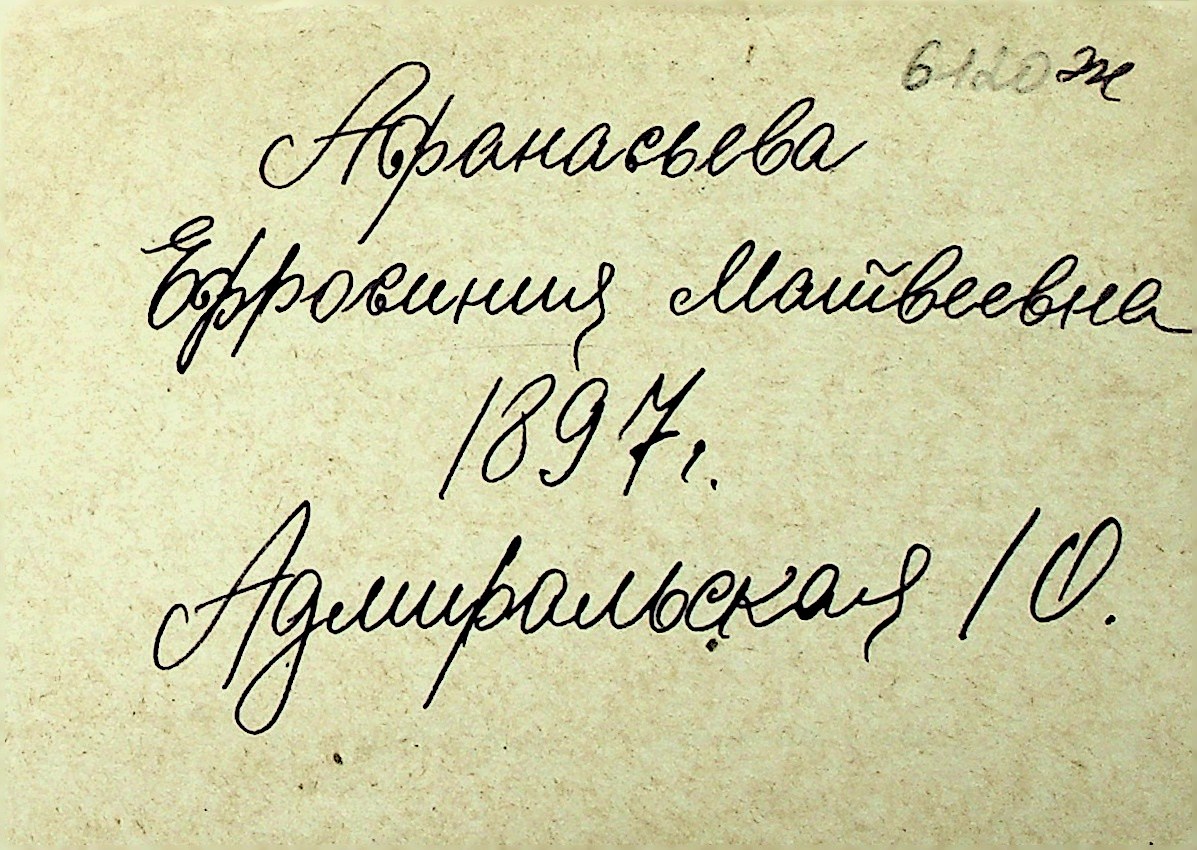 6120 ж
Афанасьева
Ефросиния Матвеевна
1897г.
Адмиральская 10.